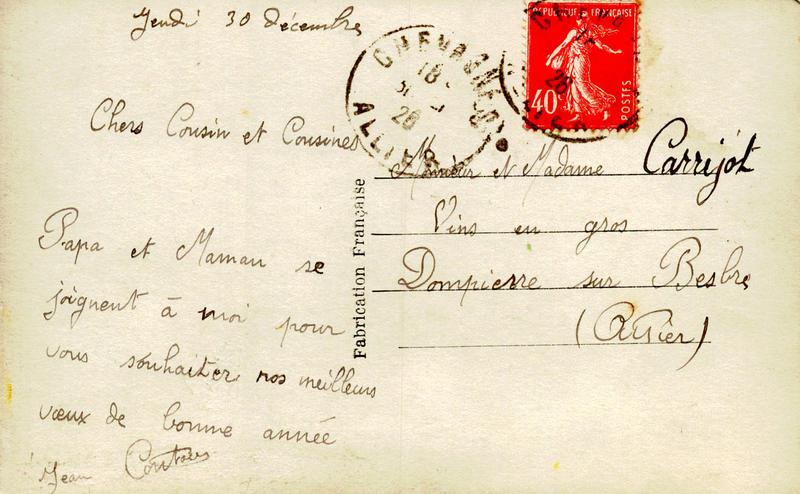 Jeudi 30 décembre
Chers Cousin et Cousines
Papa et Maman se
joignent à moi pour
vous souhaiter nos meilleurs
vœux de bonne année
Jean
CHEVAGNES
18
26
ALLIER
RÉPUBLIQUE FRANÇAISE
40c
POSTES
Fabrication Française
Monsieur et Madame Carrijot
Vins en gros
Dompierre sur Besbre
(Allier)